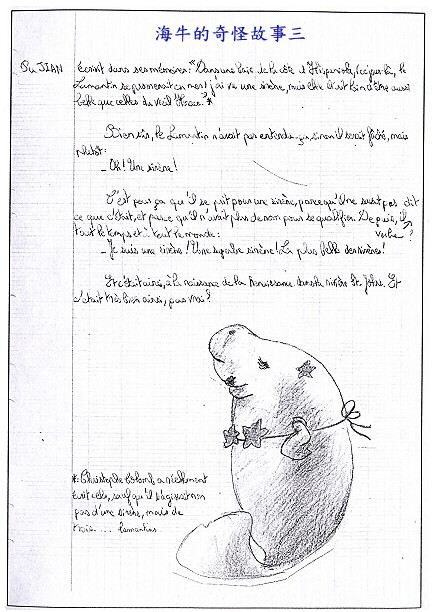 海牛的奇怪故事三
JIAN écrivit dans ses mémoires: "Dans une baie de la côte d'Hispaniola, le
Lamantin se promenait en mer) j'ai vu une sirène, mais elle était loin d'être aussi
belle que celles du vieil Horace."*
Bien sûr, le Lamantin n'avait pas entendu ça, sinon il serait fâché, mais
plutôt:
_ Oh! Une sirène!
C'est pour ça qu'il se prit pour une sirène, parce qu'il ne savait pas dit
ce que c'était, et parce qu'il n'avait plus de nom pour se qualifier. Depuis, il ?
tout le temps et à tout le monde: verbe
_ Je suis une sirène! Une superbe sirène! La plus belle des sirènes!
Et c'était ainsi, à la naissance de la Renaissance dans la rivière St. Johns. Et
c'était très bien ainsi, pas vrai?
*: Christophe Colomb a réellement
écrit cela, sauf qu'il s'agissait non
pas d'une sirène, mais de
trois.... lamantins